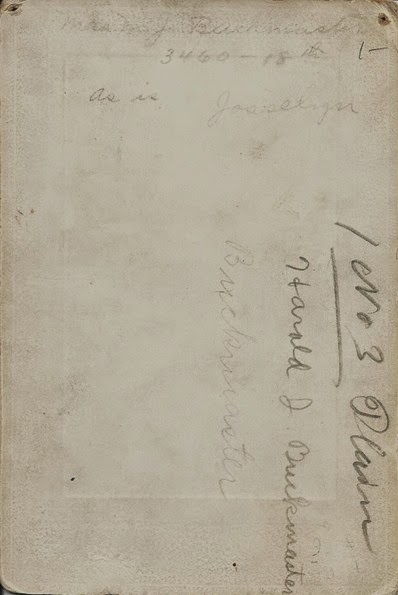 Mrs. J. Buckmaster
3460-18th
5
as is
Josselyn
1 No 3 Plain
Harold J. Buckmaster
Buckmaster